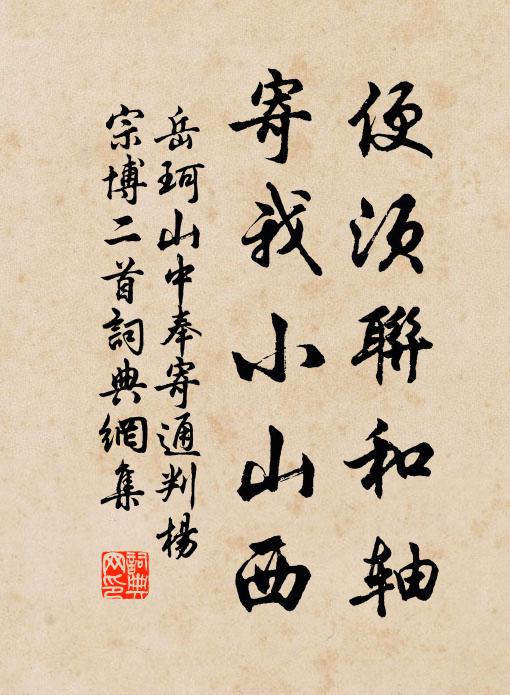 便須聯和軸
寄我小山西
岳珂山中奉寄通判楊
宗博二首詞典網集
詞典
网印